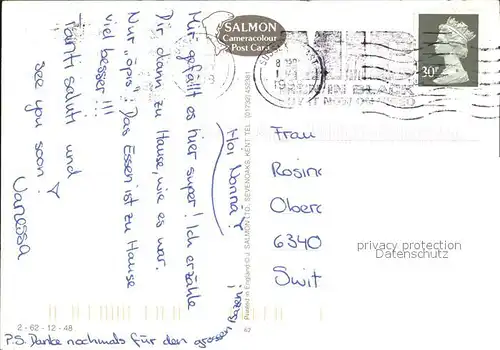 SALMON
Cameracolour
Post Card
30P
Hoi Nonna!
Mir gefällt es hier super! Ich erzähle
Dir dann zu Hause, wie es war.
Nur "öpis": Das Essen ist zu Hause
viel besser!!!
Tanti saluti und
see you soon!
Vanessa
P.S. Danke nochmals für den grossen Batzen!
Frau
Rosin
Ober
6340
Swit
privacy protection
Datenschutz
Printed in England © J. SALMON LTD., SEVENOAKS, KENT. TEL. (01732) 452381
2-62-12-48